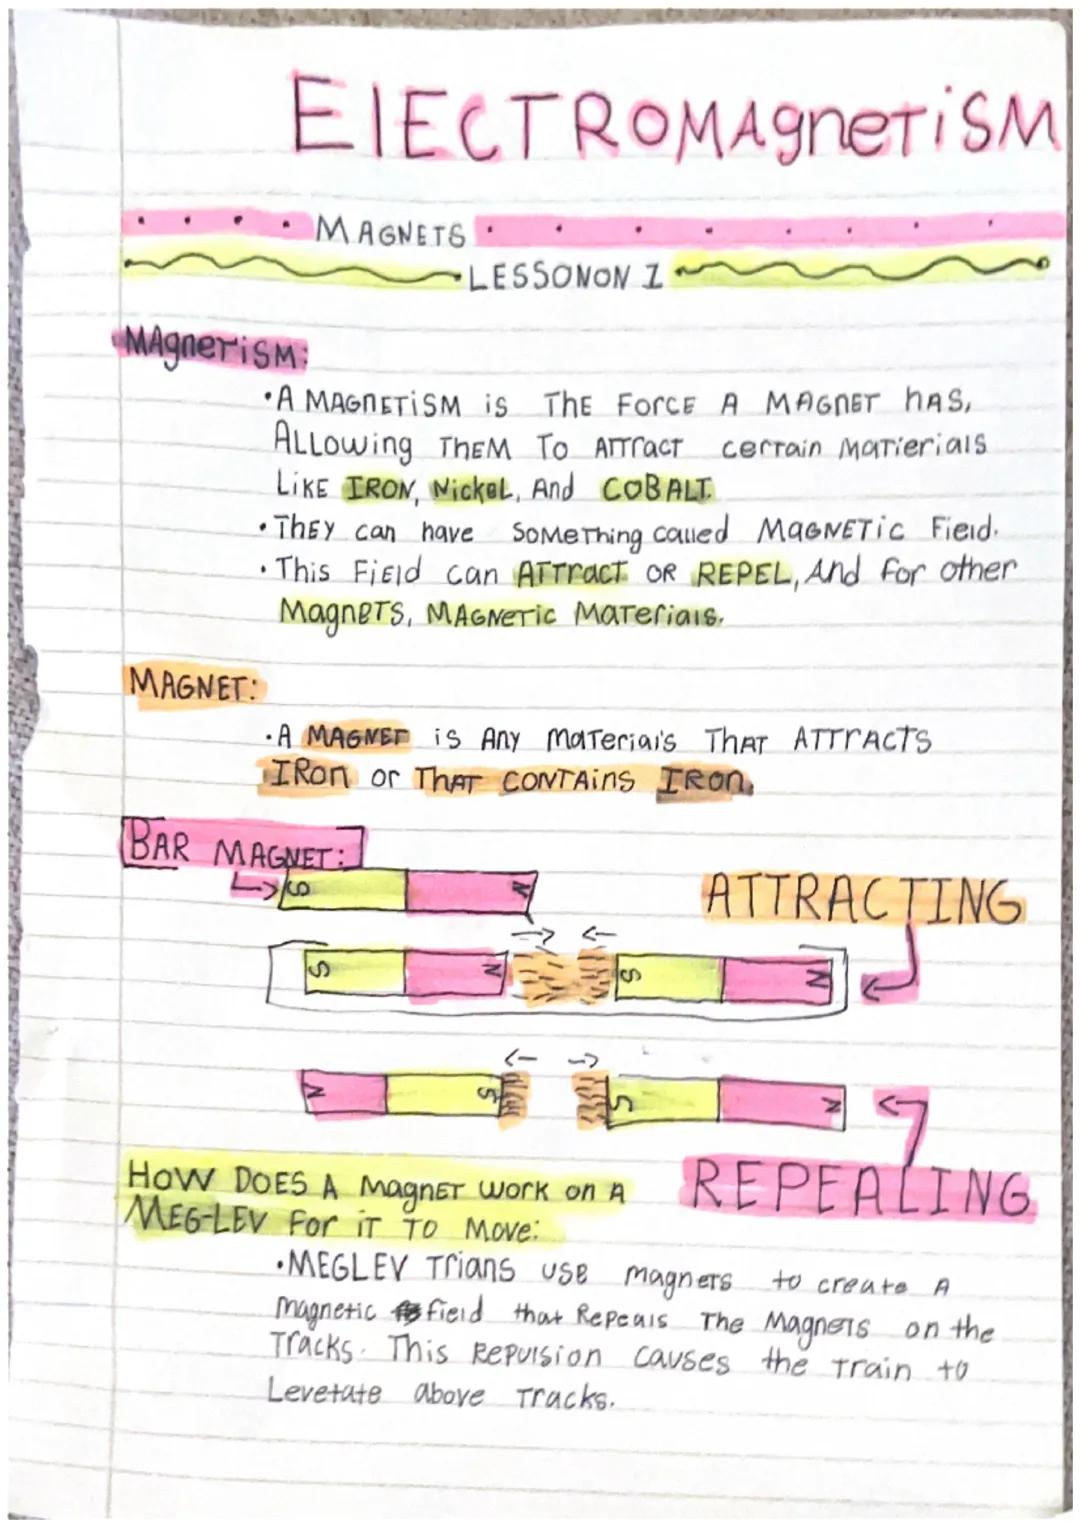 ElECTROMAgneTiSM
MAGNETS
LESSONON 1
MAgneTiSM:
•A MAGNETiSM is THE FORCE A MAGNET hAS,
ALLOwing THEM To ATTracT cerTain MaTierials
LiKE IRON, NickeL, And COBALT.
•ThEY can have SoMeThing called MaGNETic Field.
•This FiEld can ATTracT OR REPEL, And for other
MagneTS, MAGNeTic MaTerials.
MAGNET:
•A MAGNET is Any MaTerial's THAT ATTrAcTs
IRon or THAT CONTAins IRon.
BAR MAGNET:
S N
ATTRACTING
S N S N
N S S N
REPEALING
HOW DOES A MagneT work on A
MEG-LEV For iT To Move:
•MEGLEV Trians use magnets to create A
magnetic field that Repeals The Magnets on the
Tracks. This Repulsion causes the train to
Levetate above Tracks.